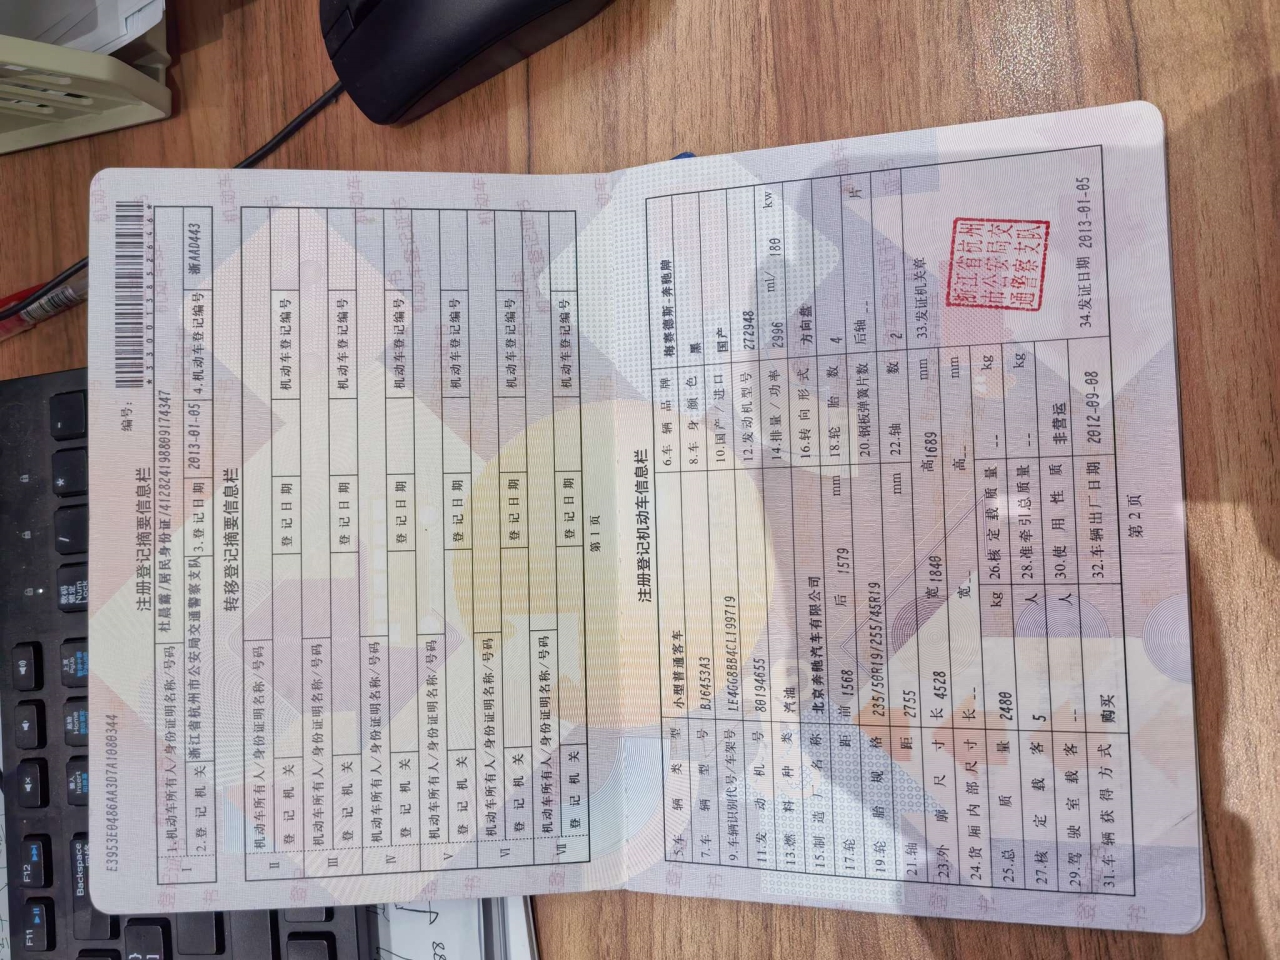 编号:
*330013852646*
E3953E0486AA3D7A1080344
注册登记摘要信息栏
I 1.机动车所有人/身份证明名称/号码 杜晨露/居民身份证/412824198809174347
2.登记机关 浙江省杭州市公安局交通警察支队 3.登记日期 2013-01-05 4.机动车登记编号 浙AAD443
转移登记摘要信息栏
II 机动车所有人/身份证明名称/号码
登记机关 登记日期 机动车登记编号
III 机动车所有人/身份证明名称/号码
登记机关 登记日期 机动车登记编号
IV 机动车所有人/身份证明名称/号码
登记机关 登记日期 机动车登记编号
V 机动车所有人/身份证明名称/号码
登记机关 登记日期 机动车登记编号
VI 机动车所有人/身份证明名称/号码
登记机关 登记日期 机动车登记编号
VII 机动车所有人/身份证明名称/号码
登记机关 登记日期 机动车登记编号
第 1 页
注册登记机动车信息栏
5.车辆类型 小型普通客车 6.车辆品牌 梅赛德斯-奔驰牌
7.车辆型号 BJ6453A3 8.车身颜色 黑
9.车辆识别代号/车架号 LE4GG8BB4CL199719 10.国产/进口 国产
11.发动机号 80194655 12.发动机型号 272948
13.燃料种类 汽油 14.排量/功率 2996 ml/ 180 kw
15.制造厂名称 北京奔驰汽车有限公司 16.转向形式 方向盘
17.轮距 前 1568 后 1579 mm 18.轮胎数 4
19.轮胎规格 235/50R19/255/45R19 20.钢板弹簧片数 后轴 -- 片
21.轴距 2755 mm 22.轴数 2
23.外廓尺寸 长 4528 宽 1840 高 1689 mm 33.发证机关章
24.货厢内部尺寸 长 -- 宽 -- 高 -- mm
浙江省杭州
市公安局交
通警察支队
25.总质量 2480 kg 26.核定载质量 -- kg
27.核定载客 5 人 28.准牵引总质量 -- kg
29.驾驶室载客 -- 人 30.使用性质 非营运
31.车辆获得方式 购买 32.车辆出厂日期 2012-09-08 34.发证日期 2013-01-05
第 2 页
F11
F12
Backspace
Insert
Home
PgUp
Num
Lock
/
*
-